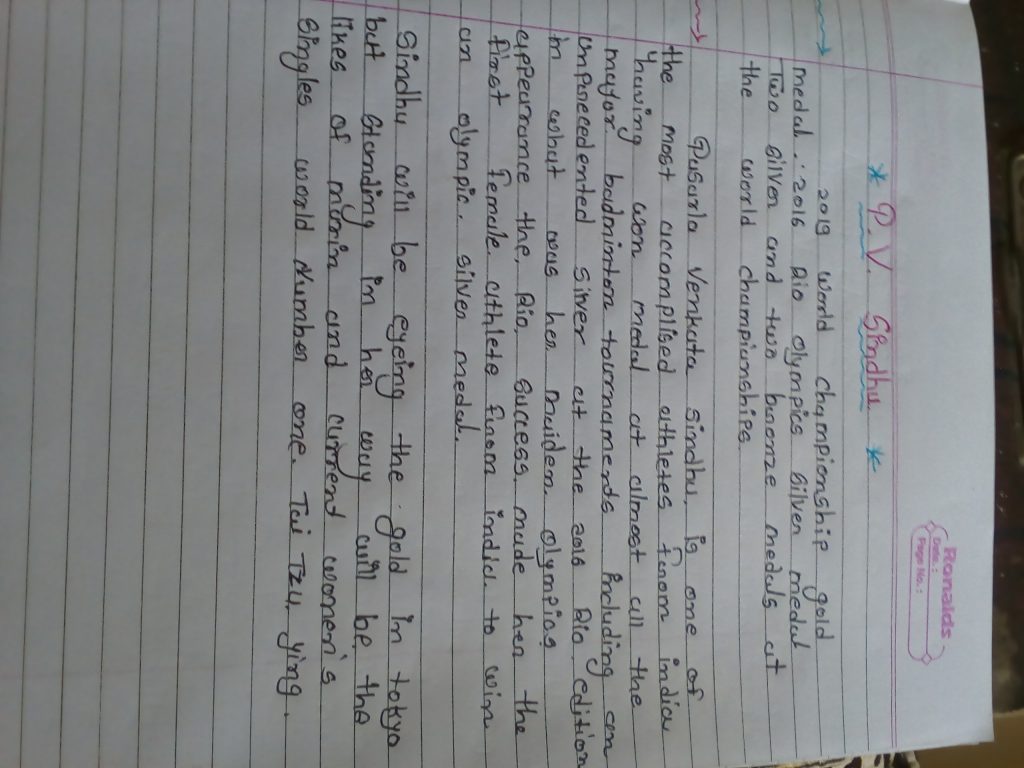 Ronalds
Date :
Page No. :
* P. V. Sindhu *
2019 world championship gold
medal. : 2016 Rio olympics silver medal
Two silver and two boronze medals at
the world championships
Pusarla Venkata sindhu. is one of
the most accomplised athletes from india
having won medal at almost all the
major badminton tournamends including an
unprecedented silver at the 2016 Rio. edition
in what was her maiden. olympias
appearance the. Rio. success. made her the
first female. athlete from india. to win.
an olympic. silver medal.
Sindhu will be eyeing the gold in tokyo
but standing in her way will be. the
likes of mirin and currend women's
singles world Number one. Tai Tzu. ying.